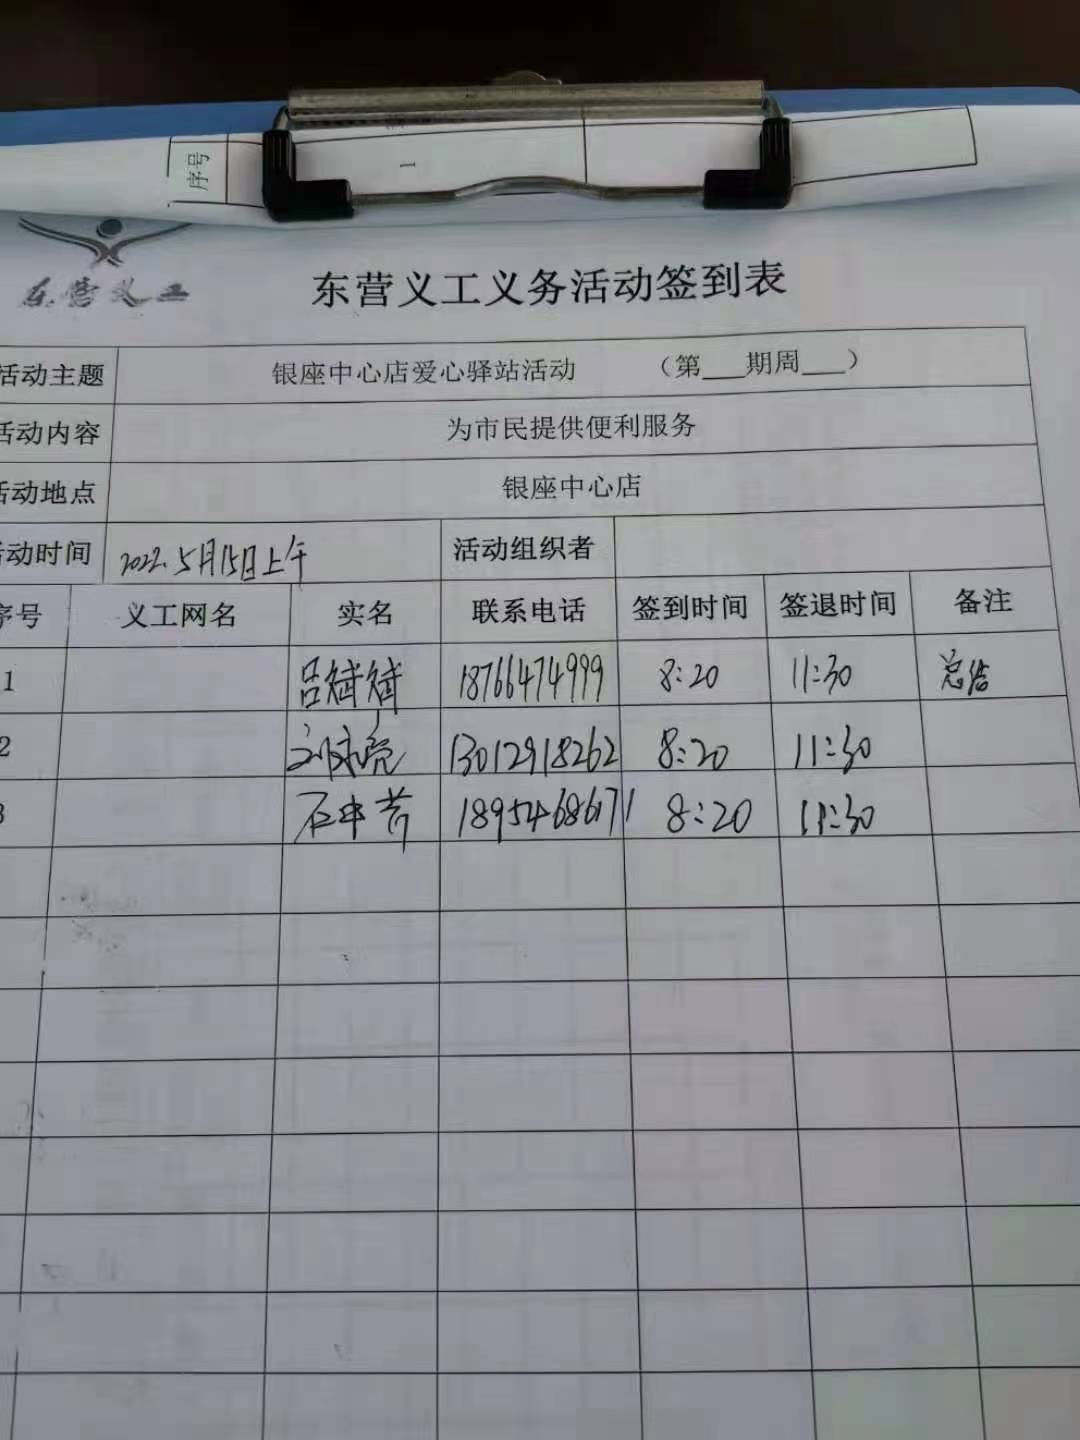 序号 1
东营义工
东营义工义务活动签到表
活动主题 银座中心店爱心驿站活动 （第___期周___）
活动内容 为市民提供便利服务
活动地点 银座中心店
活动时间 2022.5月15日上午 活动组织者
序号 义工网名 实名 联系电话 签到时间 签退时间 备注
1 吕斌斌 18766474999 8:20 11:30 总结
2 13012918262 8:20 11:30
3 18954686171 8:20 11:30